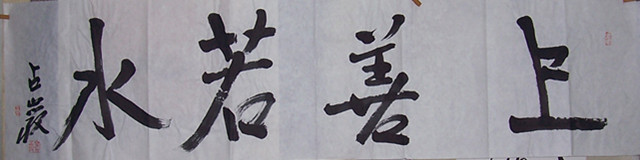 上善若水
占巖